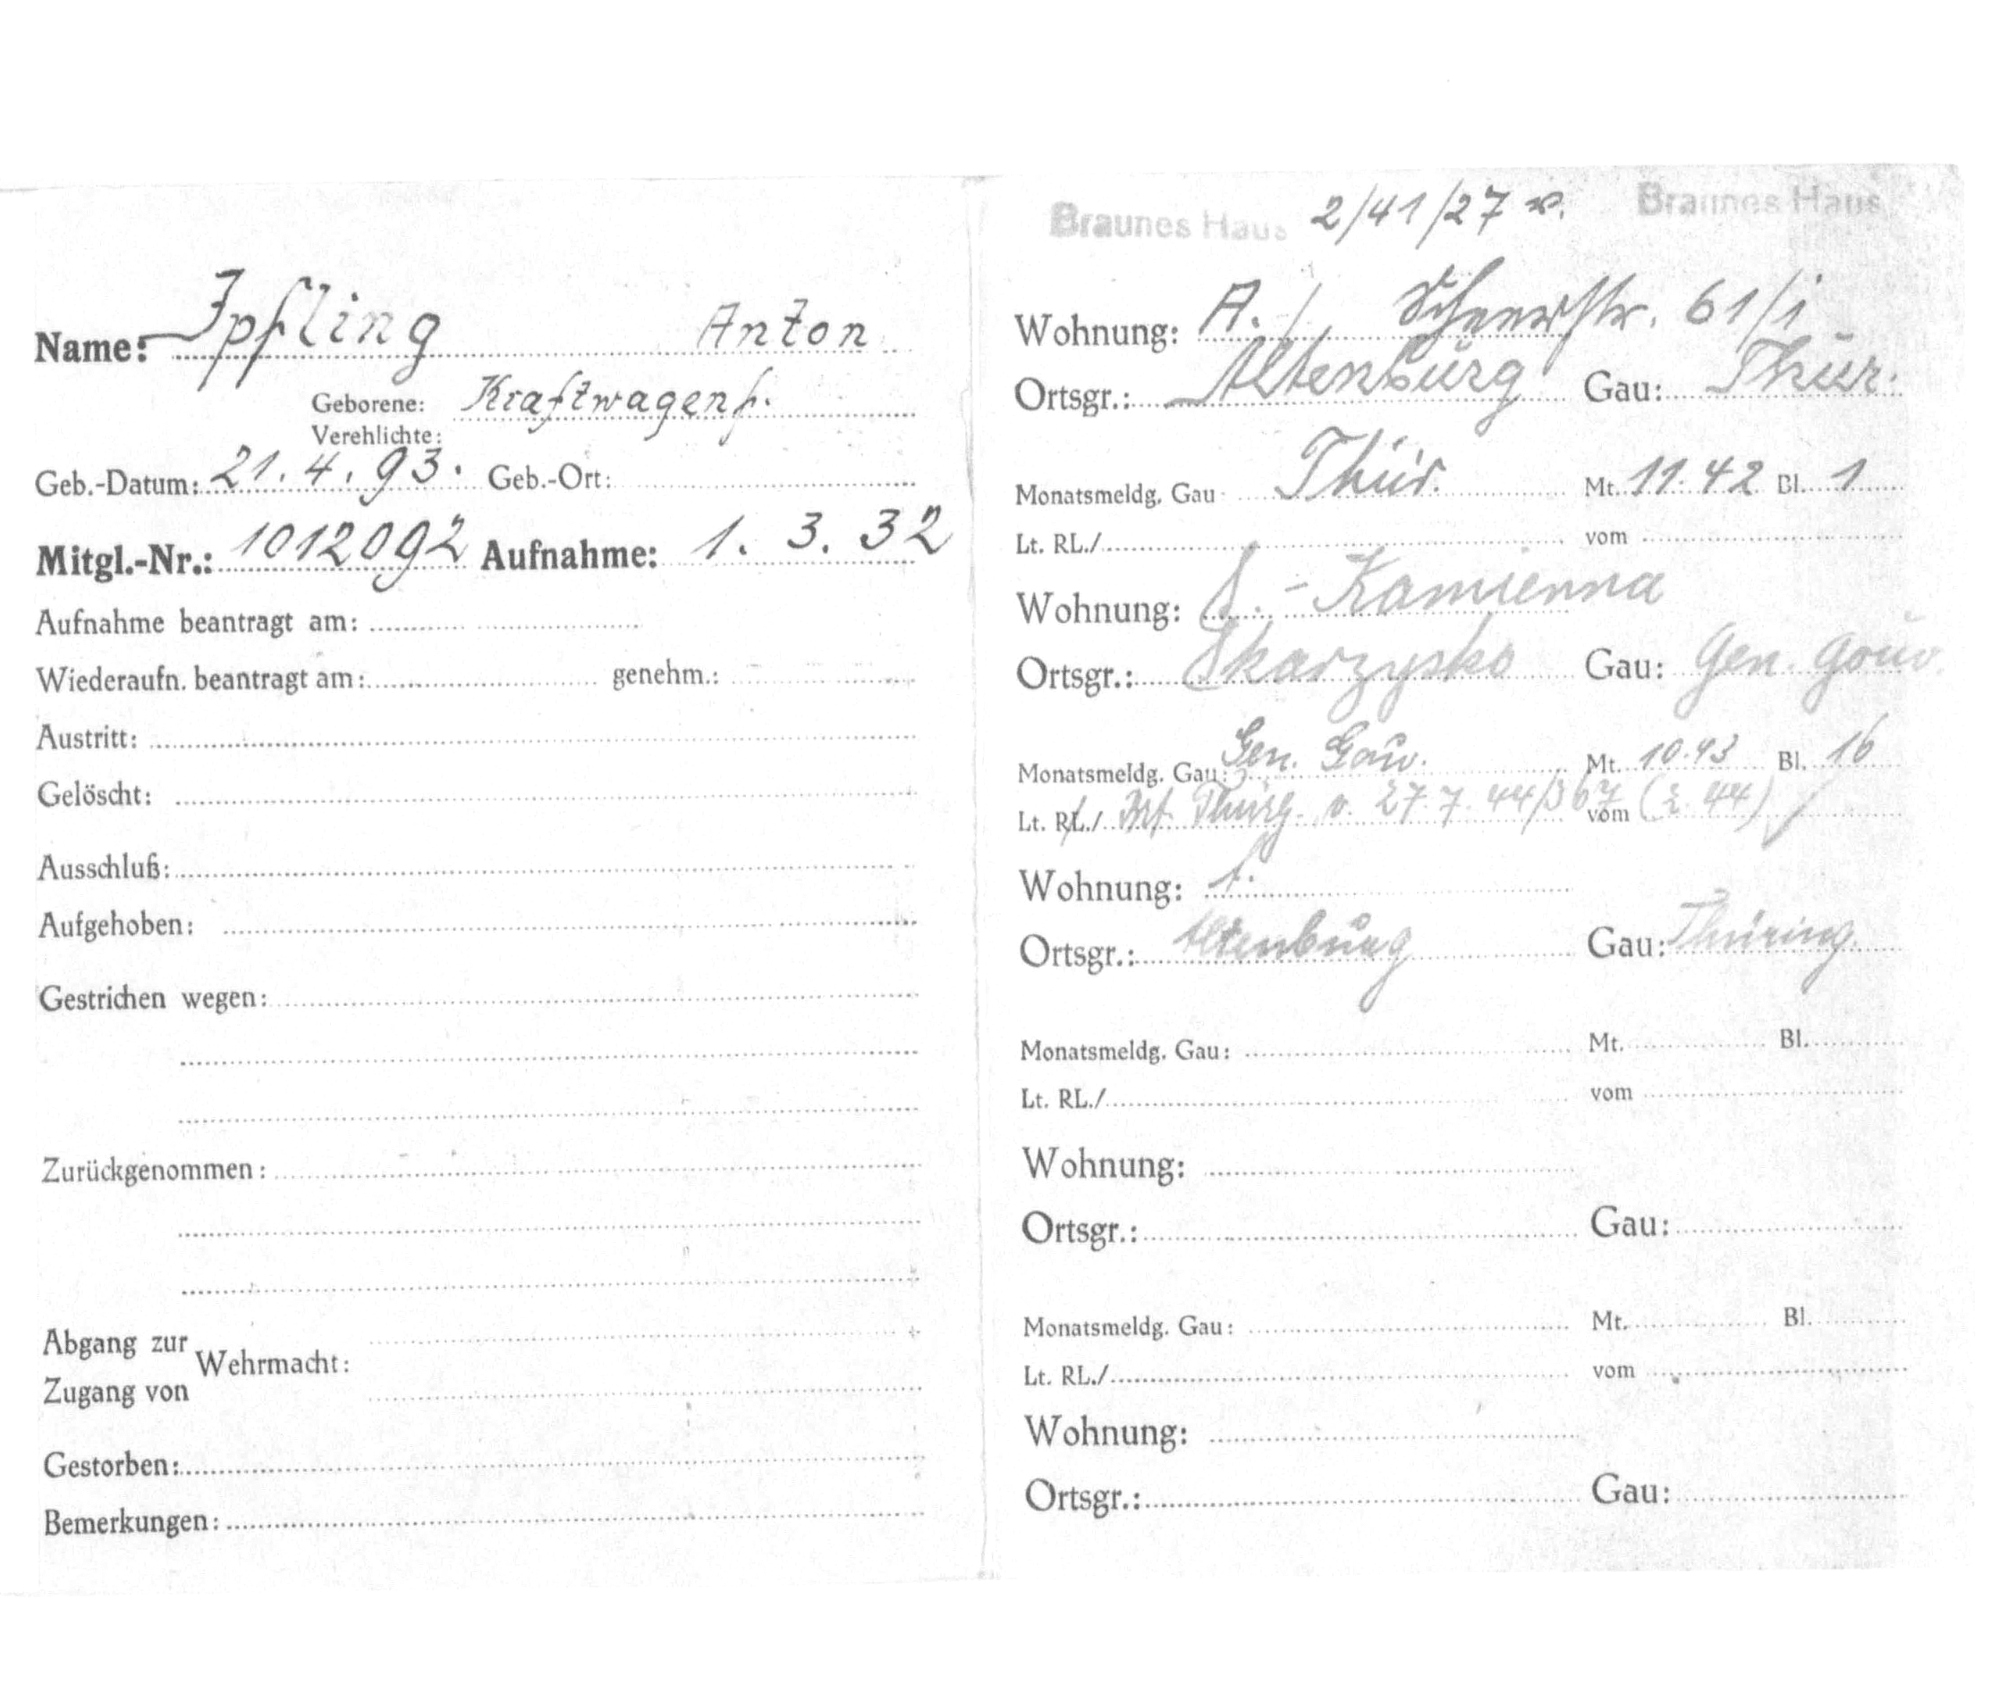 Name: Ipfling Anton
Geborene: Kraftwagenf.
Verehlichte:
Geb.-Datum: 21.4.93. Geb.-Ort:
Mitgl.-Nr.: 1012092 Aufnahme: 1. 3. 32
Aufnahme beantragt am:
Wiederaufn. beantragt am: genehm.:
Austritt:
Gelöscht:
Ausschluß:
Aufgehoben:
Gestrichen wegen:
Zurückgenommen:
Abgang zur
Wehrmacht:
Zugang von
Gestorben:
Bemerkungen:
Braunes Haus 2/41/27 v. Braunes Haus
Wohnung: A. 61/i
Ortsgr.: Altenburg Gau: Thür.
Monatsmeldg. Gau Thür. Mt. 11.42 Bl. 1
Lt. RL./ vom
Wohnung: S.-Kamienna
Ortsgr.: Skarzysko Gau: Gen. Gouv.
Monatsmeldg. Gau: Gen. Gouv. Mt. 10.43 Bl. 16
Lt. RL./ Thürg. v. 27.7.44/367 vom
Wohnung:
Ortsgr.: Altenburg Gau: Thüring.
Monatsmeldg. Gau: Mt. Bl.
Lt. RL./ vom
Wohnung:
Ortsgr.: Gau:
Monatsmeldg. Gau: Mt. Bl.
Lt. RL./ vom
Wohnung:
Ortsgr.: Gau: